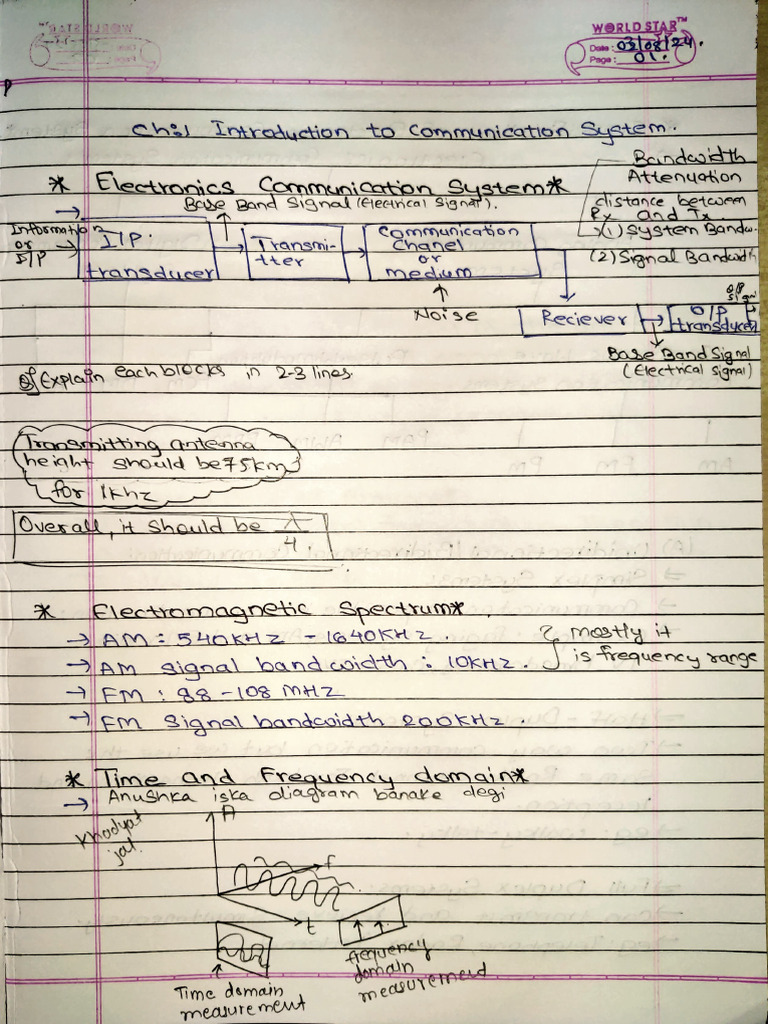 WORLD STAR™
Date: 03/08/24.
Page: 01.
Ch:1 Introduction to Communication System.
* Electronics Communication System*
Bandwidth
Attenuation
distance between
Rx and Tx.
(1) System Bandw.
(2) Signal Bandwidth
Base Band Signal (Electrical Signal).
Information
or
I/P
I/P.
transducer
Transmi-
tter
Communication
Chanel
or
medium
Noise
Reciever
O/P
transducer
O/P
Signal
Base Band Signal
(Electrical Signal)
Q] Explain each blocks in 2-3 lines.
Transmitting antenna
height should be 75km
for 1khz
Overall, it should be λ/4
* Electromagnetic Spectrum*
→ AM: 540KHZ - 1640KHZ.
→ AM signal bandwidth: 10KHZ.
} mostly it
is frequency range
→ FM: 88-108 MHZ
→ FM Signal bandwidth 200KHZ.
* Time and Frequency domain*
→ Anushka iska diagram banake degi
Khodyat
jat.
A
f
t
Time domain
measurement
frequency
domain
measurement